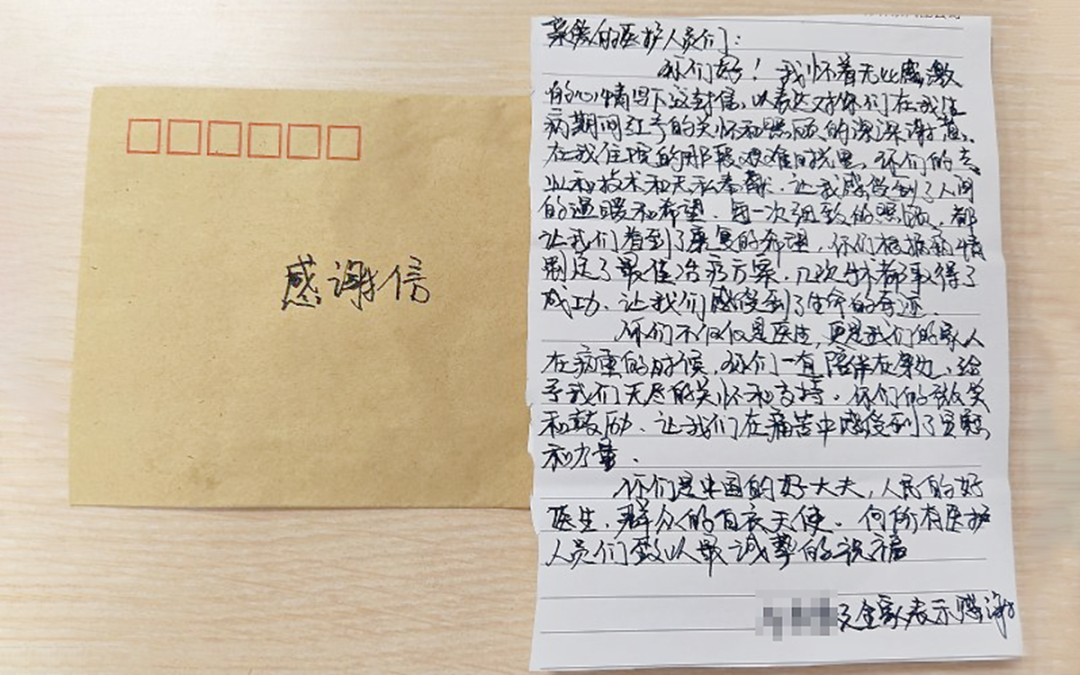 感谢信
亲爱的医护人员们：
你们好！我怀着无比感激
的心情写下这封信，以表达对你们在我住
病期间给予的关怀和照顾的深深谢意。
在我住院的那段艰难时光里，你们的专
业和技术和无私奉献，让我感受到了人间
的温暖和希望．每一次细致的照顾，都
让我们看到了康复的希望，你们根据病情
制定了最佳治疗方案，几次手术都取得了
成功、让我们感受到了生命的奇迹．
你们不仅仅是医生，更是我们的家人
在病重的时候，你们一直陪伴在身边、给
予我们无尽的关怀和支持．你们的微笑
和鼓励、让我们在痛苦中感受到了
和力量．
你们是中国的好大夫，人民的好
医生．群众的白衣天使．向所有医护
人员们致以最诚挚的祝福
及全家表示感谢